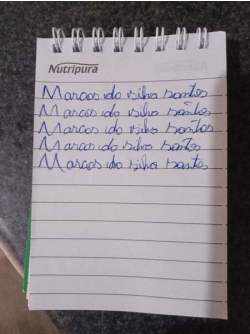 Nutripura
Marcos do silva santos
Marcos do silva sãntos
Marcos do silva santos
Marcos do silva santos
Marcos do silva santos